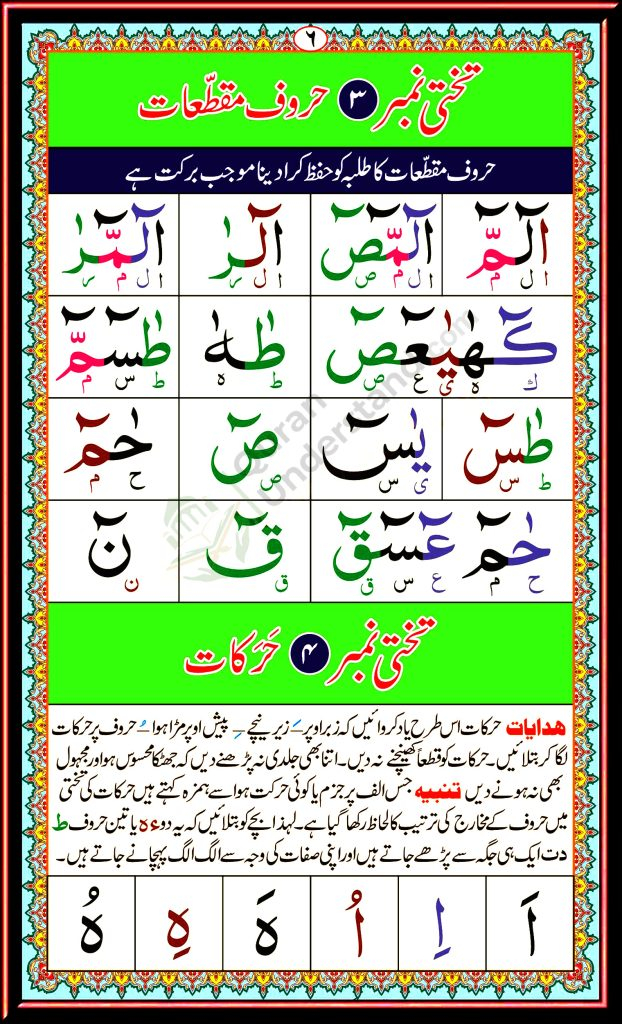 ٦
تختی نمبر ٣ حروف مقطّعات
حروف مقطّعات کا طلبہ کو حفظ کرا دینا موجب برکت ہے
الٓمّٓ الٓمّٓصٓ الٓرٰ الٓمّٓرٰ
ا ل م ا ل م ص ا ل ر ا ل م ر
كٓهٰيٰعٓصٓ طٰهٰ طٰسٓمّٓ
ك ه ی ع ص ط ه ط س م
طٰسٓ يٰسٓ صٓ حٰمٓ
ط س ی س ص ح م
حٰمٓ عٓسٓقٓ قٓ نٓ
ح م ع س ق ق ن
تختی نمبر ۴ حَرَکات
هدایات حرکات اس طرح یاد کروائیں کہ زبر اوپر ـَ زیر نیچے ـِ پیش اوپر مڑا ہوا ـُ حروف پر حرکات
لگا کر بتلائیں۔ حرکات کو قطعاً کھینچنے نہ دیں۔ اتنا بھی جلدی نہ پڑھنے دیں کہ جھٹکا محسوس ہو اور مجہول
بھی نہ ہونے دیں تنبیه جس الف پر جزم یا کوئی حرکت ہو اسے ہمزہ کہتے ہیں حرکات کی تختی
میں حروف کے مخارج کی ترتیب کا لحاظ رکھا گیا ہے۔ لہذا بچے کو بتلائیں کہ یہ دو ء ہ یا تین حروف ط
د ت ایک ہی جگہ سے پڑھے جاتے ہیں اور اپنی صفات کی وجہ سے الگ الگ پہچانے جاتے ہیں۔
اَ اِ اُ هَ هِ هُ
Quran
Understand.com